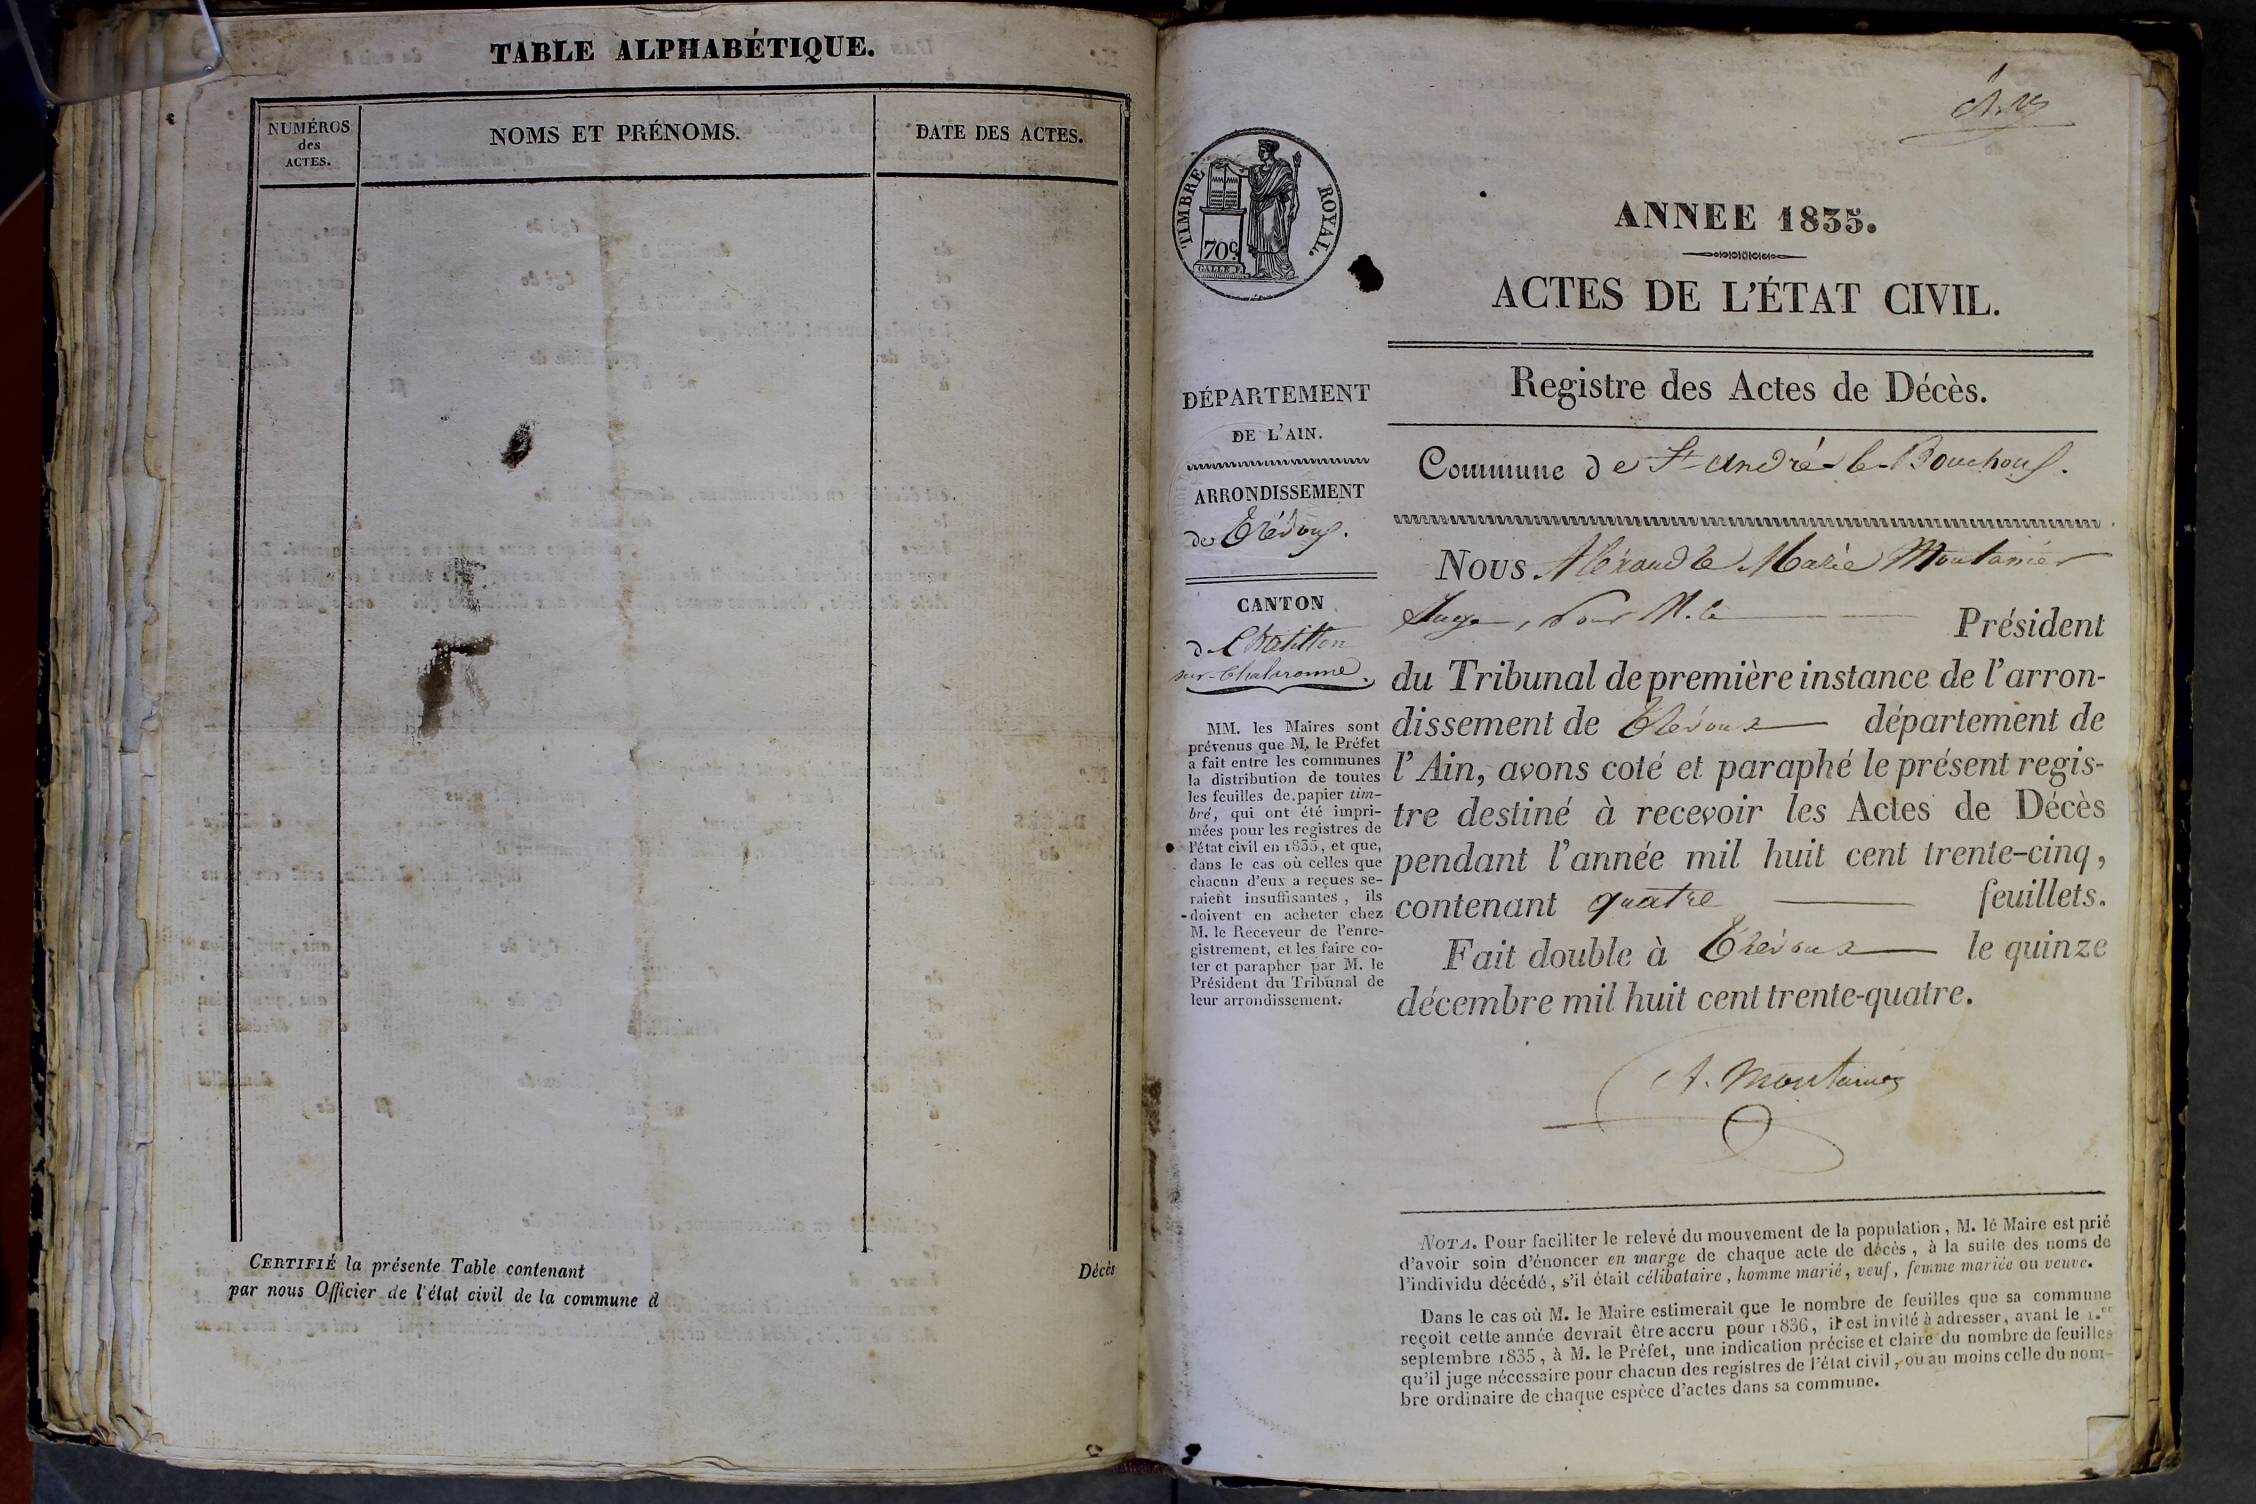 TABLE ALPHABÉTIQUE.
NUMÉROS
des
ACTES.
NOMS ET PRÉNOMS.
DATE DES ACTES.
CERTIFIÉ la présente Table contenant Décès
par nous Officier de l'état civil de la commune d
TIMBRE ROYAL.
70c.
ANNEE 1835.
ACTES DE L'ÉTAT CIVIL.
DÉPARTEMENT
DE L'AIN.
ARRONDISSEMENT
de Trévoux.
CANTON
de Chatillon
sur-Chalaronne.
MM. les Maires sont
prévenus que M. le Préfet
a fait entre les communes
la distribution de toutes
les feuilles de papier tim-
bré, qui ont été impri-
mées pour les registres de
l'état civil en 1835, et que,
dans le cas où celles que
chacun d'eux a reçues se-
raient insuffisantes, ils
doivent en acheter chez
M. le Receveur de l'enre-
gistrement, et les faire co-
ter et parapher par M. le
Président du Tribunal de
leur arrondissement.
Registre des Actes de Décès.
Commune de St André-le-Bouchoux.
NOUS Marie Montanier
Juge, pour M. le Président
du Tribunal de première instance de l'arron-
dissement de Trévoux département de
l'Ain, avons coté et paraphé le présent regis-
tre destiné à recevoir les Actes de Décès
pendant l'année mil huit cent trente-cinq,
contenant quatre feuillets.
Fait double à Trévoux le quinze
décembre mil huit cent trente-quatre.
A. Montanier
NOTA. Pour faciliter le relevé du mouvement de la population, M. le Maire est prié
d'avoir soin d'énoncer en marge de chaque acte de décès, à la suite des noms de
l'individu décédé, s'il était célibataire, homme marié, veuf, femme mariée ou veuve.
Dans le cas où M. le Maire estimerait que le nombre de feuilles que sa commune
reçoit cette année devrait être accru pour 1836, il est invité à adresser, avant le 1.er
septembre 1835, à M. le Préfet, une indication précise et claire du nombre de feuilles
qu'il juge nécessaire pour chacun des registres de l'état civil, ou au moins celle du nom-
bre ordinaire de chaque espèce d'actes dans sa commune.